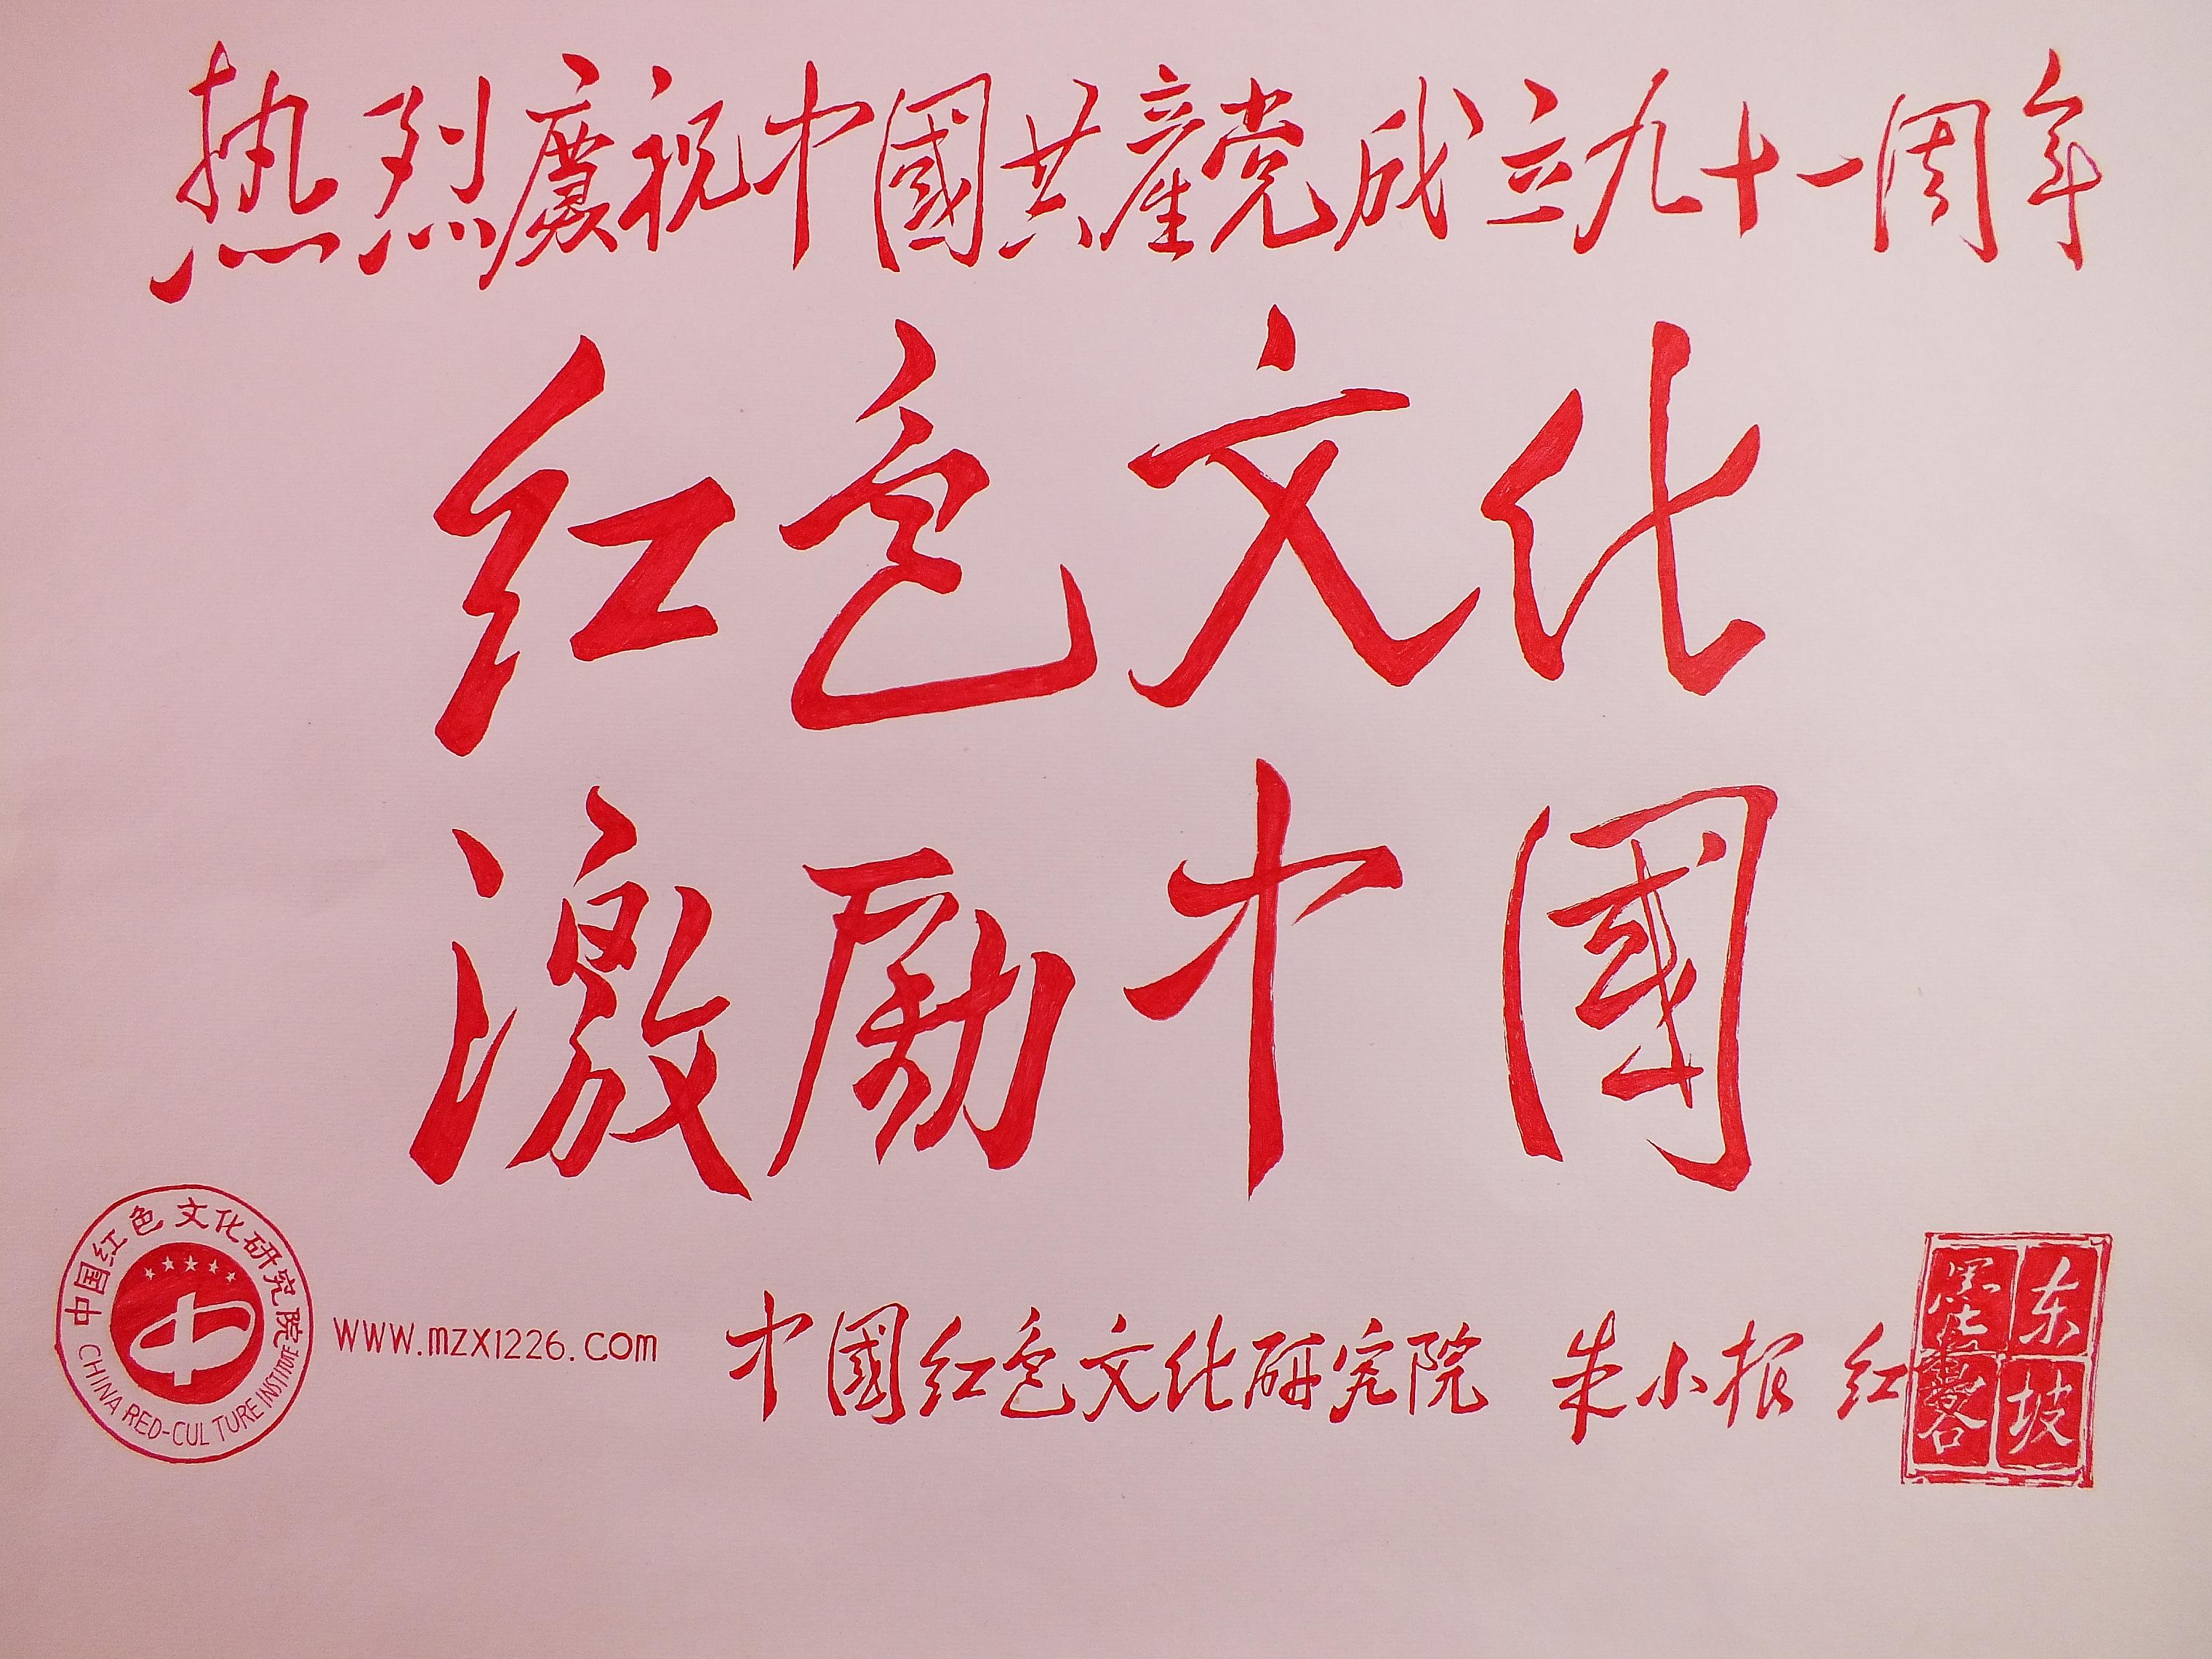 热烈慶祝中國共產党成立九十一周年
红色文化
激励中國
中国红色文化研究院
CHINA RED-CULTURE INSTITUTE
WWW.MZX1226.COM
中國红色文化研究院 朱小根 红
东坡